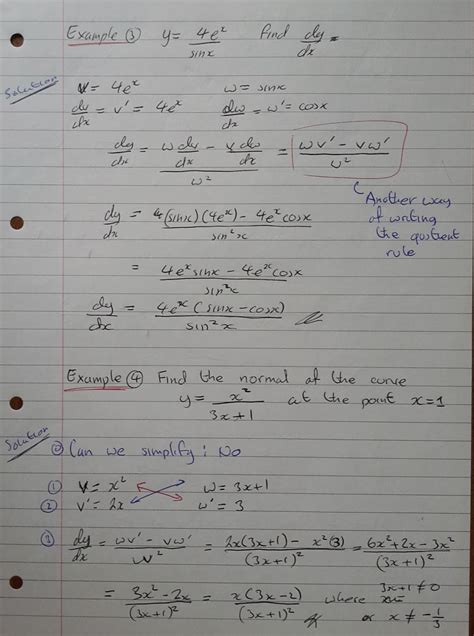 Example ③ y = 4eˣ / sinx find dy/dx =
Solution
v = 4eˣ w = sinx
dv/dx = v' = 4eˣ dw/dx = w' = cosx
dy/dx = (w dv/dx - v dw/dx) / w² = (wv' - vw') / w²
Another way
of writing
the quotient
rule
dy/dx = (sinx)(4eˣ) - 4eˣcosx / sin²x
= 4eˣsinx - 4eˣcosx / sin²x
dy/dx = 4eˣ(sinx - cosx) / sin²x
Example ④ Find the normal of the curve
y = x² / 3x+1 at the point x=1
Solution
⓪ Can we simplify: No
① v = x² w = 3x+1
② v' = 2x w' = 3
③ dy/dx = wv' - vw' / w² = 2x(3x+1) - x²(3) / (3x+1)² = 6x²+2x-3x² / (3x+1)²
= 3x²-2x / (3x+1)² = x(3x-2) / (3x+1)² where 3x+1 ≠ 0
or x ≠ -1/3